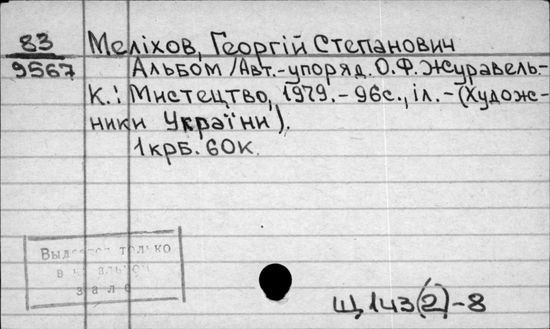 83 Меліхов, Георгій Степанович
9567 Альбом /Авт.-упоряд. О.Ф.Журавель.-
К.: Мистецтво, 1979.-96с., іл.-(Худож-
ники України).
1крб. 60к.
только
зале
Щ143(2)-8